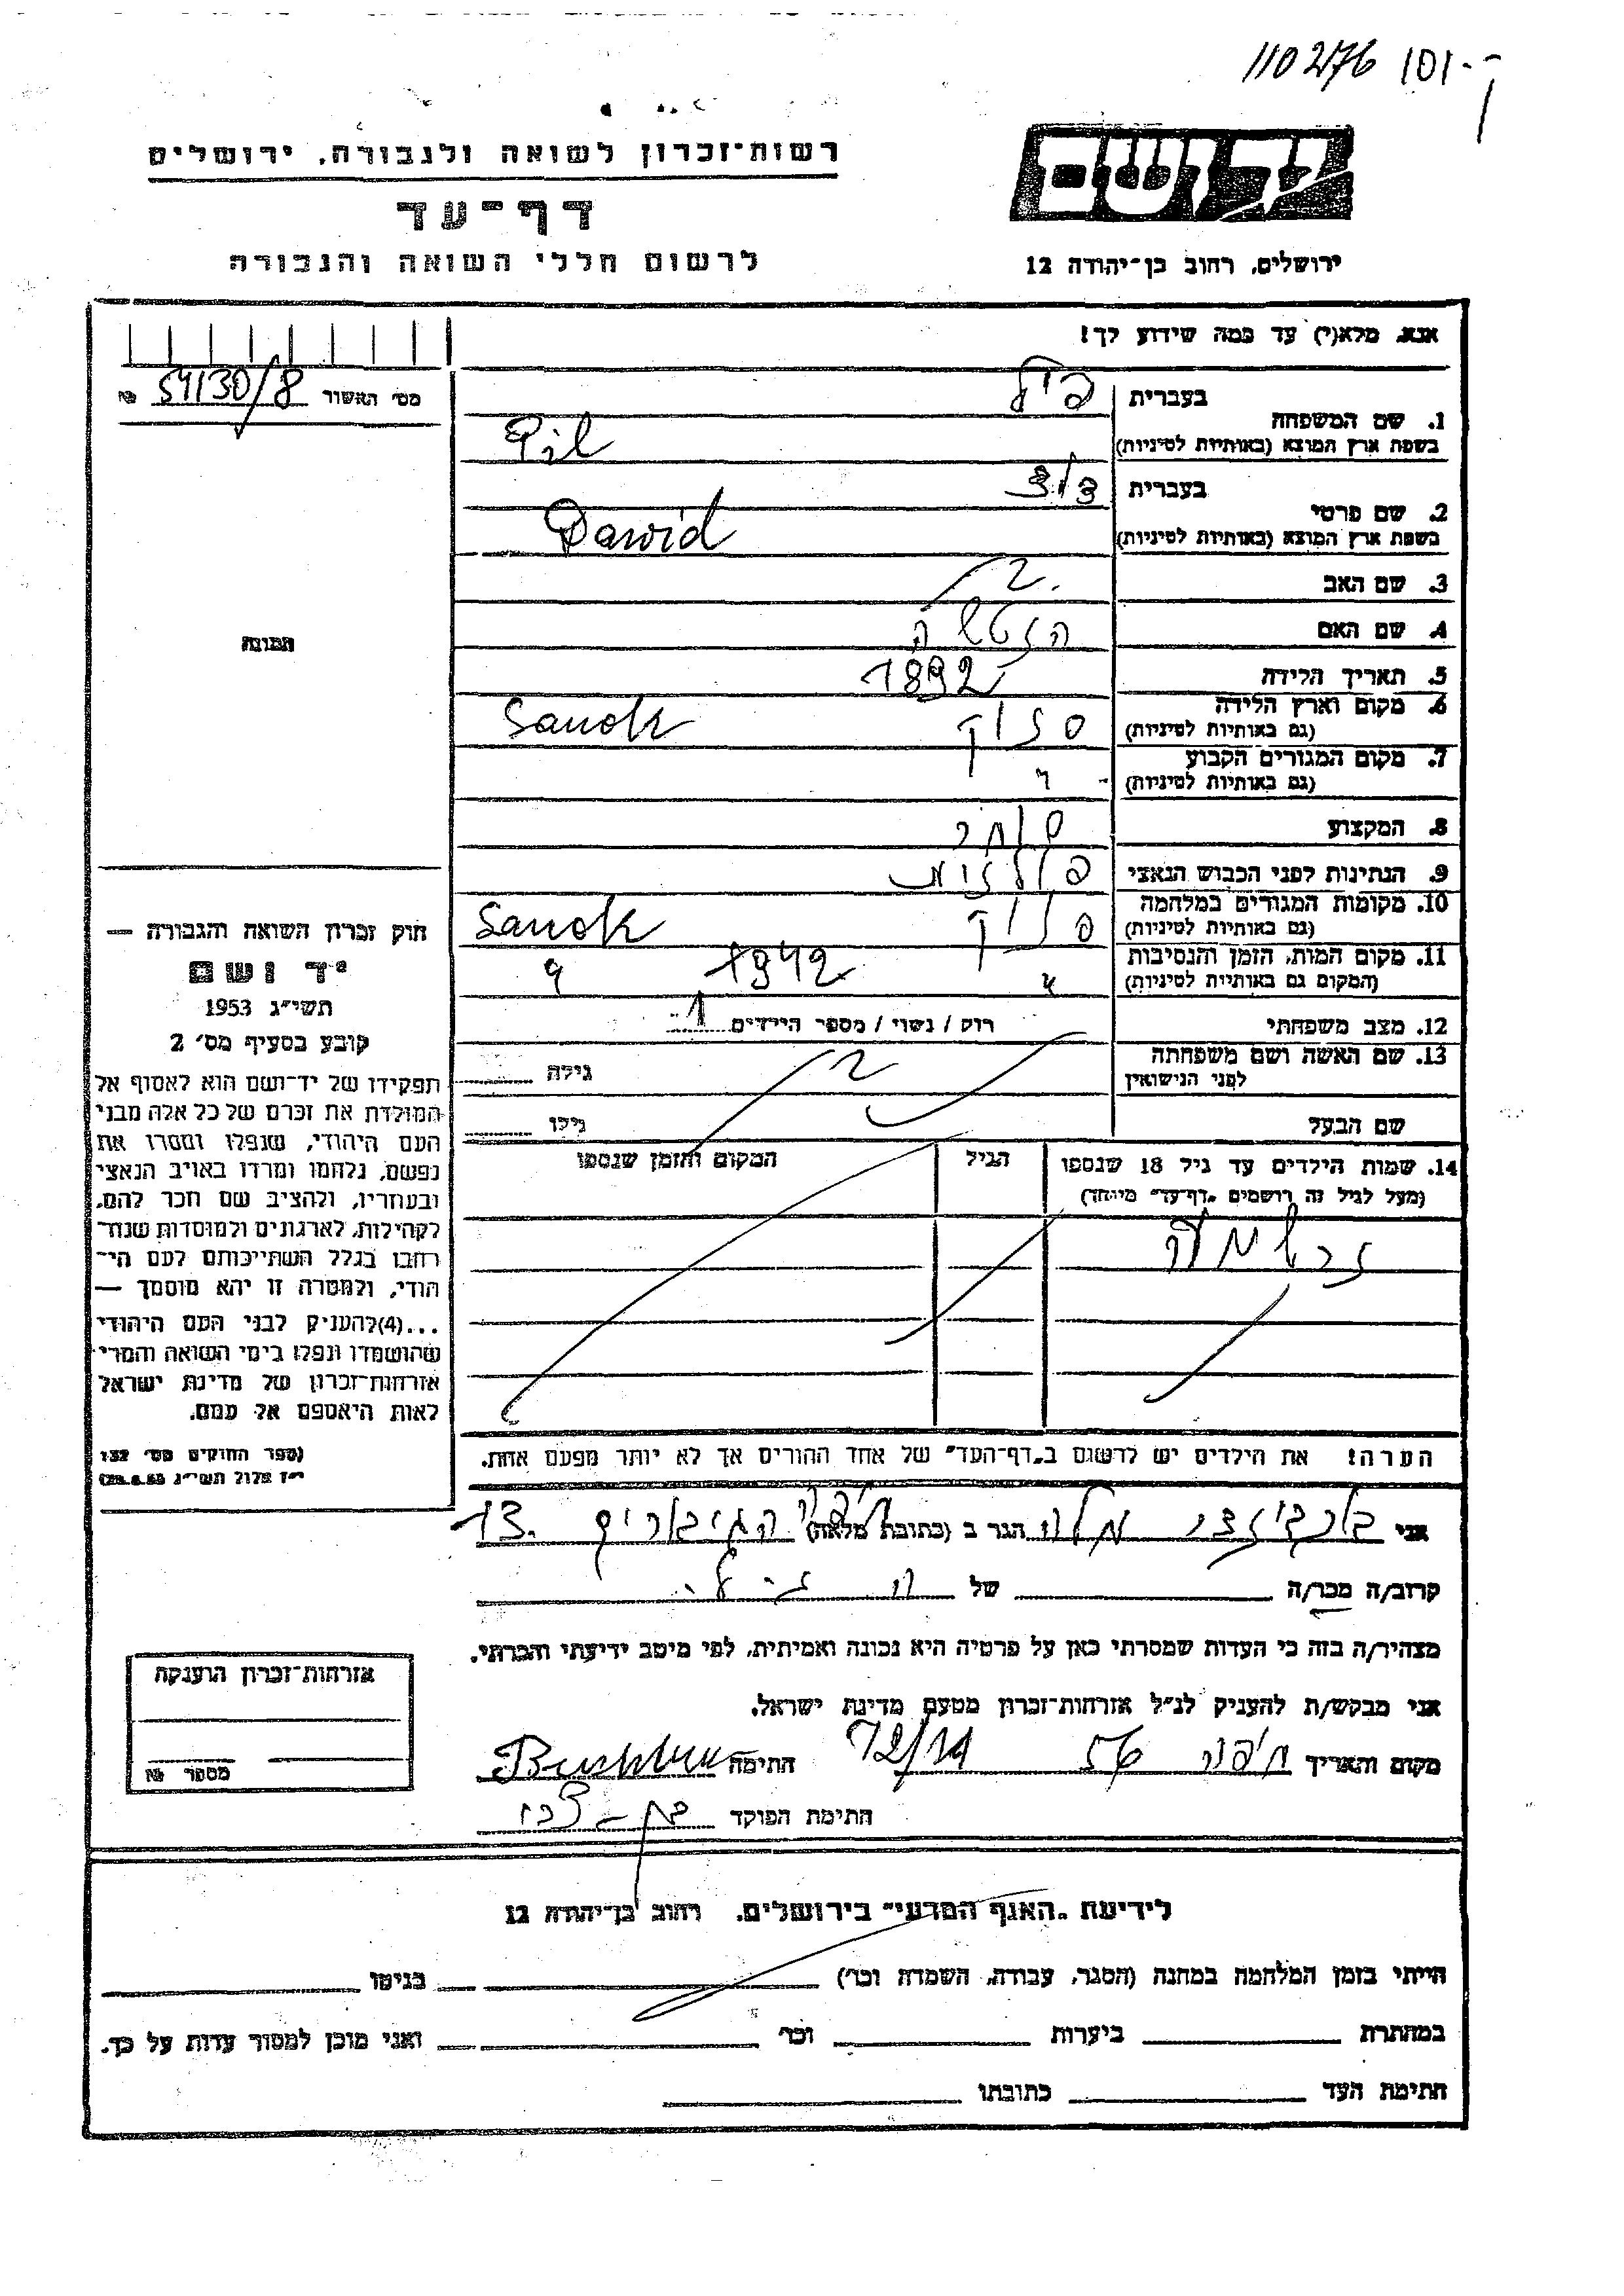 110276 101-
רשות־זכרון לשואה ולגבורה, ירושלים
דף־עד
לרשום חללי השואה והגבורה
יד ושם
ירושלים, רחוב בן־יהודה 12
אנא, מלא(י) עד כמה שידוע לך!
מס׳ האשור 54130/8 №
תמונה
1. שם המשפחה
בעברית פיל
בשפת ארץ המוצא (באותיות לטיניות) Pil
2. שם פרטי
בעברית דוד
בשפת ארץ המוצא (באותיות לטיניות) Dawid
3. שם האב
4. שם האם
5. תאריך הלידה 1892
6. מקום וארץ הלידה
(גם באותיות לטיניות) סנוק Sanok
7. מקום המגורים הקבוע
(גם באותיות לטיניות) "
8. המקצוע סוחר
9. הנתינות לפני הכבוש הנאצי פולנית
10. מקומות המגורים במלחמה
(גם באותיות לטיניות) סנוק Sanok
11. מקום המות, הזמן והנסיבות
(המקום גם באותיות לטיניות) " 1942 "
12. מצב משפחתי רווק / נשוי / מספר הילדים 1
13. שם האשה ושם משפחתה
לפני הנישואין גילה
שם הבעל גילו
14. שמות הילדים עד גיל 18 שנספו
(מעל לגיל זה רושמים „דף־עד״ מיוחד)
הגיל
המקום והזמן שנספו
הערה! את הילדים יש לרשום ב„דף־העד״ של אחד ההורים אך לא יותר מפעם אחת.
חוק זכרון השואה והגבורה —
יד ושם
תשי״ג 1953
קובע בסעיף מס׳ 2
תפקידו של יד־ושם הוא לאסוף אל
המולדת את זכרם של כל אלה מבני
העם היהודי, שנפלו ומסרו את
נפשם, נלחמו ומרדו באויב הנאצי
ובעוזריו, ולהציב שם וזכר להם,
לקהילות, לארגונים ולמוסדות שנח־
רבו בגלל השתייכותם לעם הי־
הודי, ולמטרה זו יהא מוסמך —
...(4) להעניק לבני העם היהודי
שהושמדו ונפלו בימי השואה והמרי
אזרחות־זכרון של מדינת ישראל
לאות היאספם אל עמם.
(ספר החוקים מס׳ 132
י״ז אלול תשי״ג 28.8.53)
אני הגר ב (כתובת מלאה) חיפה הגיבורים 13.
קרוב/ה מכר/ה של
מצהיר/ה בזה כי העדות שמסרתי כאן על פרטיה היא נכונה ואמיתית, לפי מיטב ידיעתי והכרתי.
אני מבקש/ת להעניק לנ״ל אזרחות־זכרון מטעם מדינת ישראל.
מקום ותאריך חיפה 56 12/11 חתימה
חתימת הפוקד
אזרחות־זכרון הוענקה
מספר №
לידיעת „האגף המדעי״ בירושלים, רחוב בן־יהודה 12
הייתי בזמן המלחמה במחנה (הסגר, עבודה, השמדה וכו׳) בגיטו
במחתרת ביערות וכו׳ ואני מוכן למסור עדות על כך.
חתימת העד כתובתו